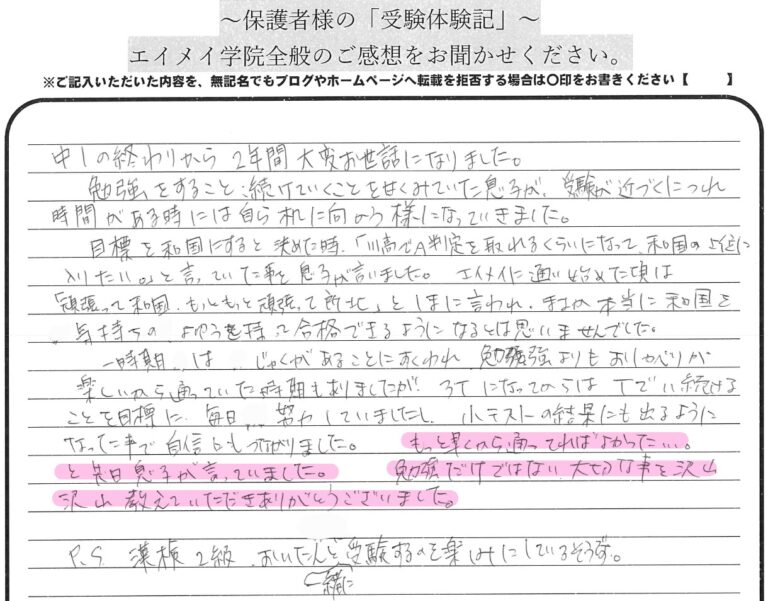 ～保護者様の「受験体験記」～
エイメイ学院全般のご感想をお聞かせください。
※ご記入いただいた内容を、無記名でもブログやホームページへ転載を拒否する場合は〇印をお書きください【　　】
中1の終わりから2年間大変お世話になりました。
勉強をすること、続けていくことを甘くみていた息子が、受験が近づくにつれ
時間がある時には自ら机に向かう様になっていきました。
目標を和国にすると決めた時、「川高でA判定を取れるくらいになって、和国の上位に
入りたい。」と言っていた事を息子が言いました。エイメイに通い始めた頃は
「頑張って和国、もっともっと頑張って所北」と言われ、まさか本当に和国を
気持ちのよゆうを持って合格できるようになるとは思いませんでした。
一時期は、じゃくがあることにすくわれ、勉強よりもおしゃべりが
楽しいから通っていた時期もありましたが、3Tになってからは Tでい続ける
ことを目標に、毎日努力していましたし、小テストの結果にも出るように
なった事で自信にもつながりました。もっと早くから通ってればよかった…。
と先日息子が言っていました。勉強だけではない大切な事を沢山
沢山教えていただきありがとうございました。
P.S. 漢検2級、おいたんと受験するのを楽しみにしているそうです。
一緒に